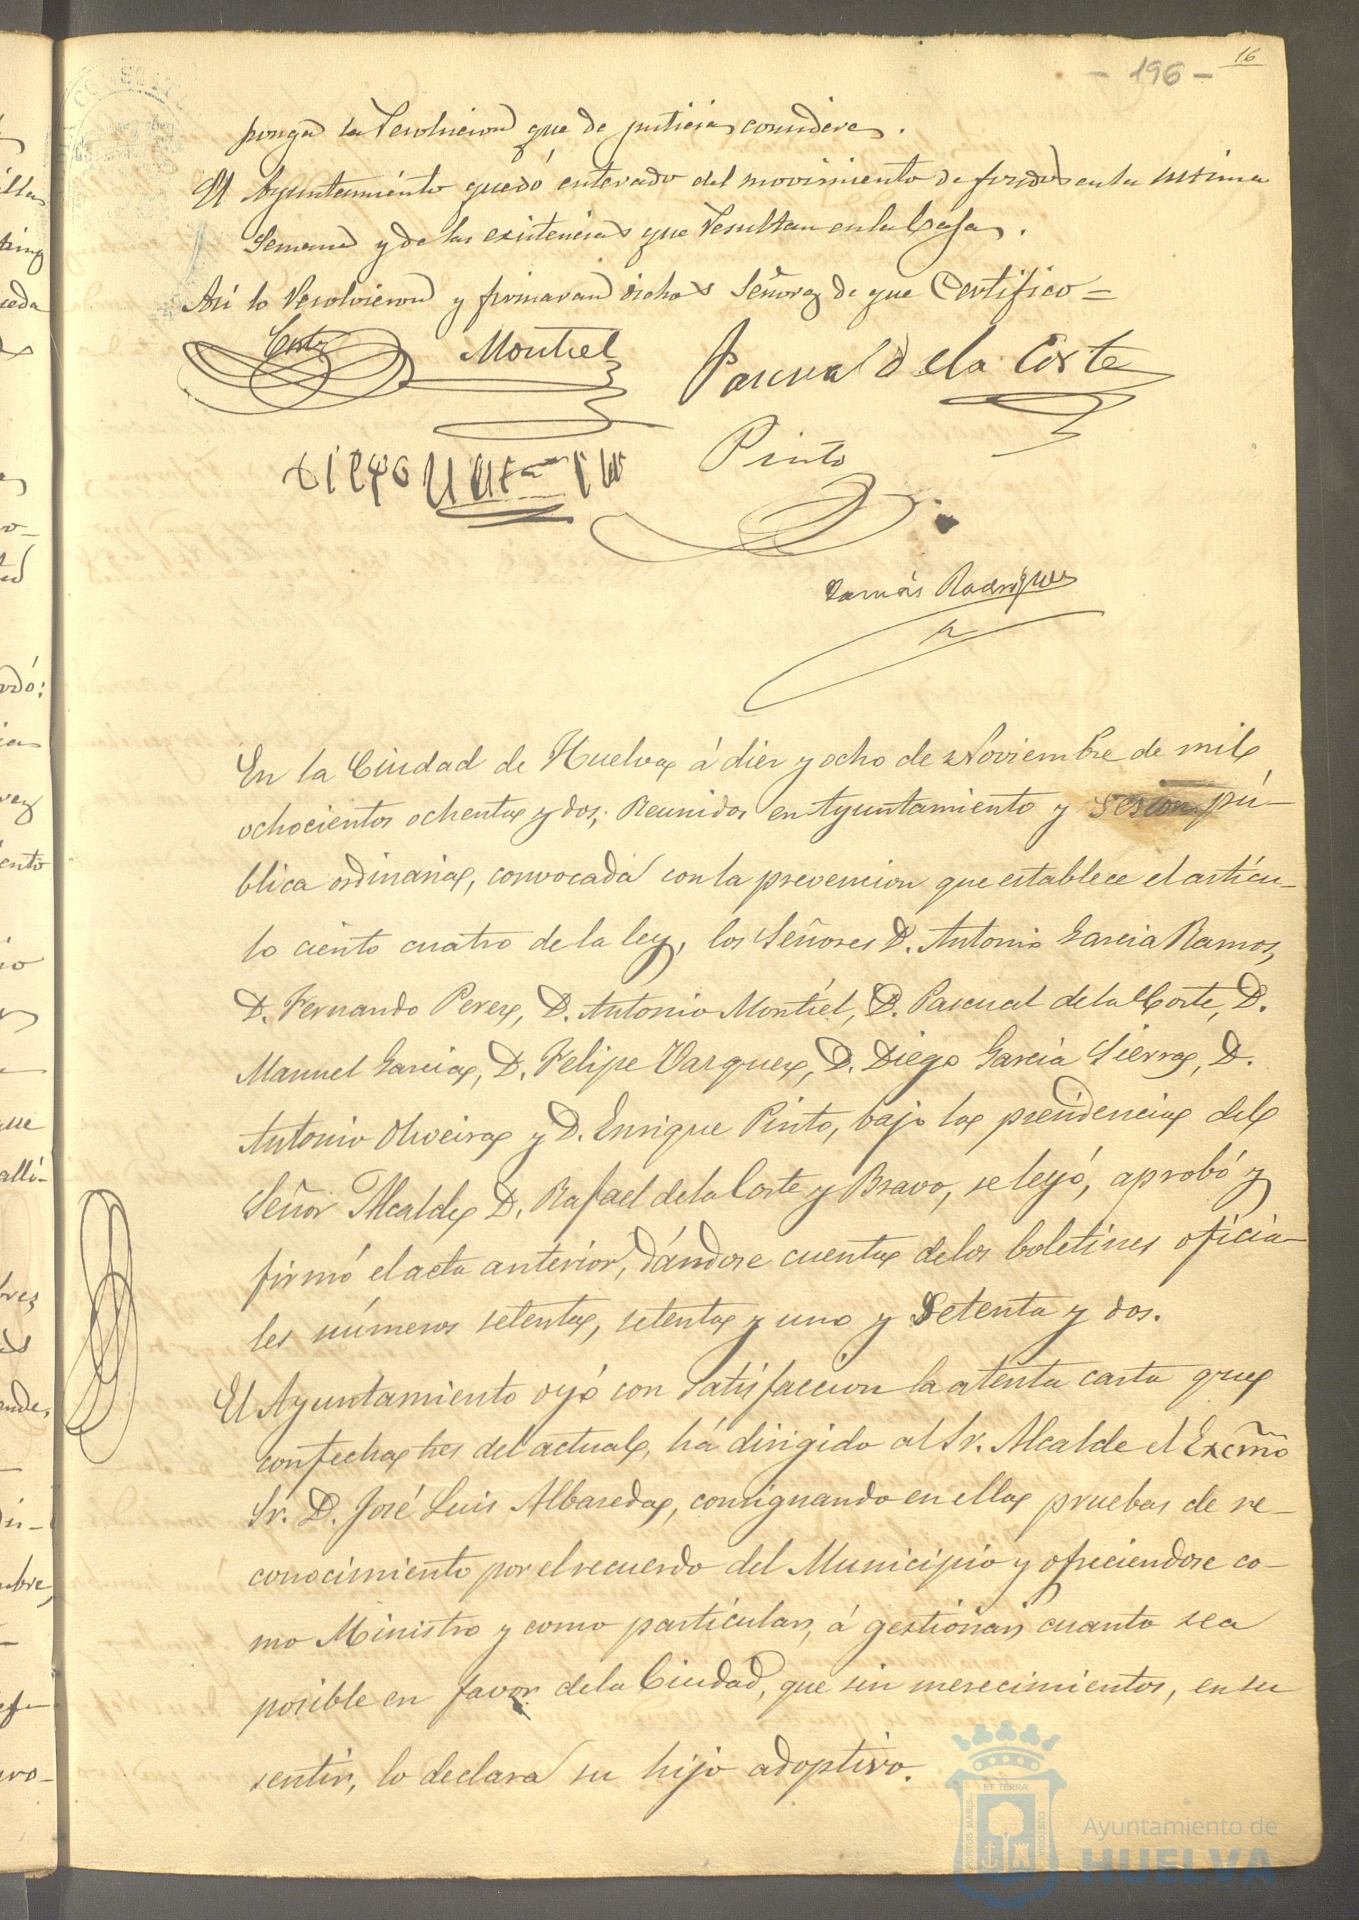 16
- 196 -
ponga la resolucion que de justicia considere.
El Ayuntamiento quedó enterado del movimiento de fondos en la última
Semana y de las existencias que resultan en la Caja.
Así lo resolvieron y firmaran dichos Señores de que Certifico=
Corte Montiel Pascual de la Corte
Pinto
Tomás Rodriguez
En la Ciudad de Huelva á diez y ocho de Noviembre de mil
ochocientos ochenta y dos; Reunidos en Ayuntamiento y Sesion pú-
blica ordinaria, convocada con la prevencion que establece el artícu-
lo ciento cuatro de la ley, los Señores D. Antonio Garcia Ramos,
D. Fernando Perez, D. Antonio Montiel, D. Pascual de la Corte, D.
Manuel Garcia, D. Felipe Vazquez, D. Diego Garcia Sierra, D.
Antonio Oliveira y D. Enrique Pinto, bajo la presidencia del
Señor Alcalde D. Rafael de la Corte y Bravo, se leyó, aprobó y
firmó el acta anterior, dándose cuenta de los boletines oficia-
les números setenta, setenta y uno y Setenta y dos.
El Ayuntamiento oyó con satisfaccion la atenta carta que
con fecha tres del actual, há dirigido al Sr. Alcalde el Excmo
Sr. D. José Luis Albareda, consignando en ella pruebas de re-
conocimiento por el recuerdo del Municipio y ofreciendose co-
mo Ministro y como particular, á gestionar cuanto sea
posible en favor de la Ciudad, que sin merecimientos, en su
sentir, lo declara su hijo adoptivo.
PORTUS MARIS ET TERRAE CUSTODIA
Ayuntamiento de
HUELVA